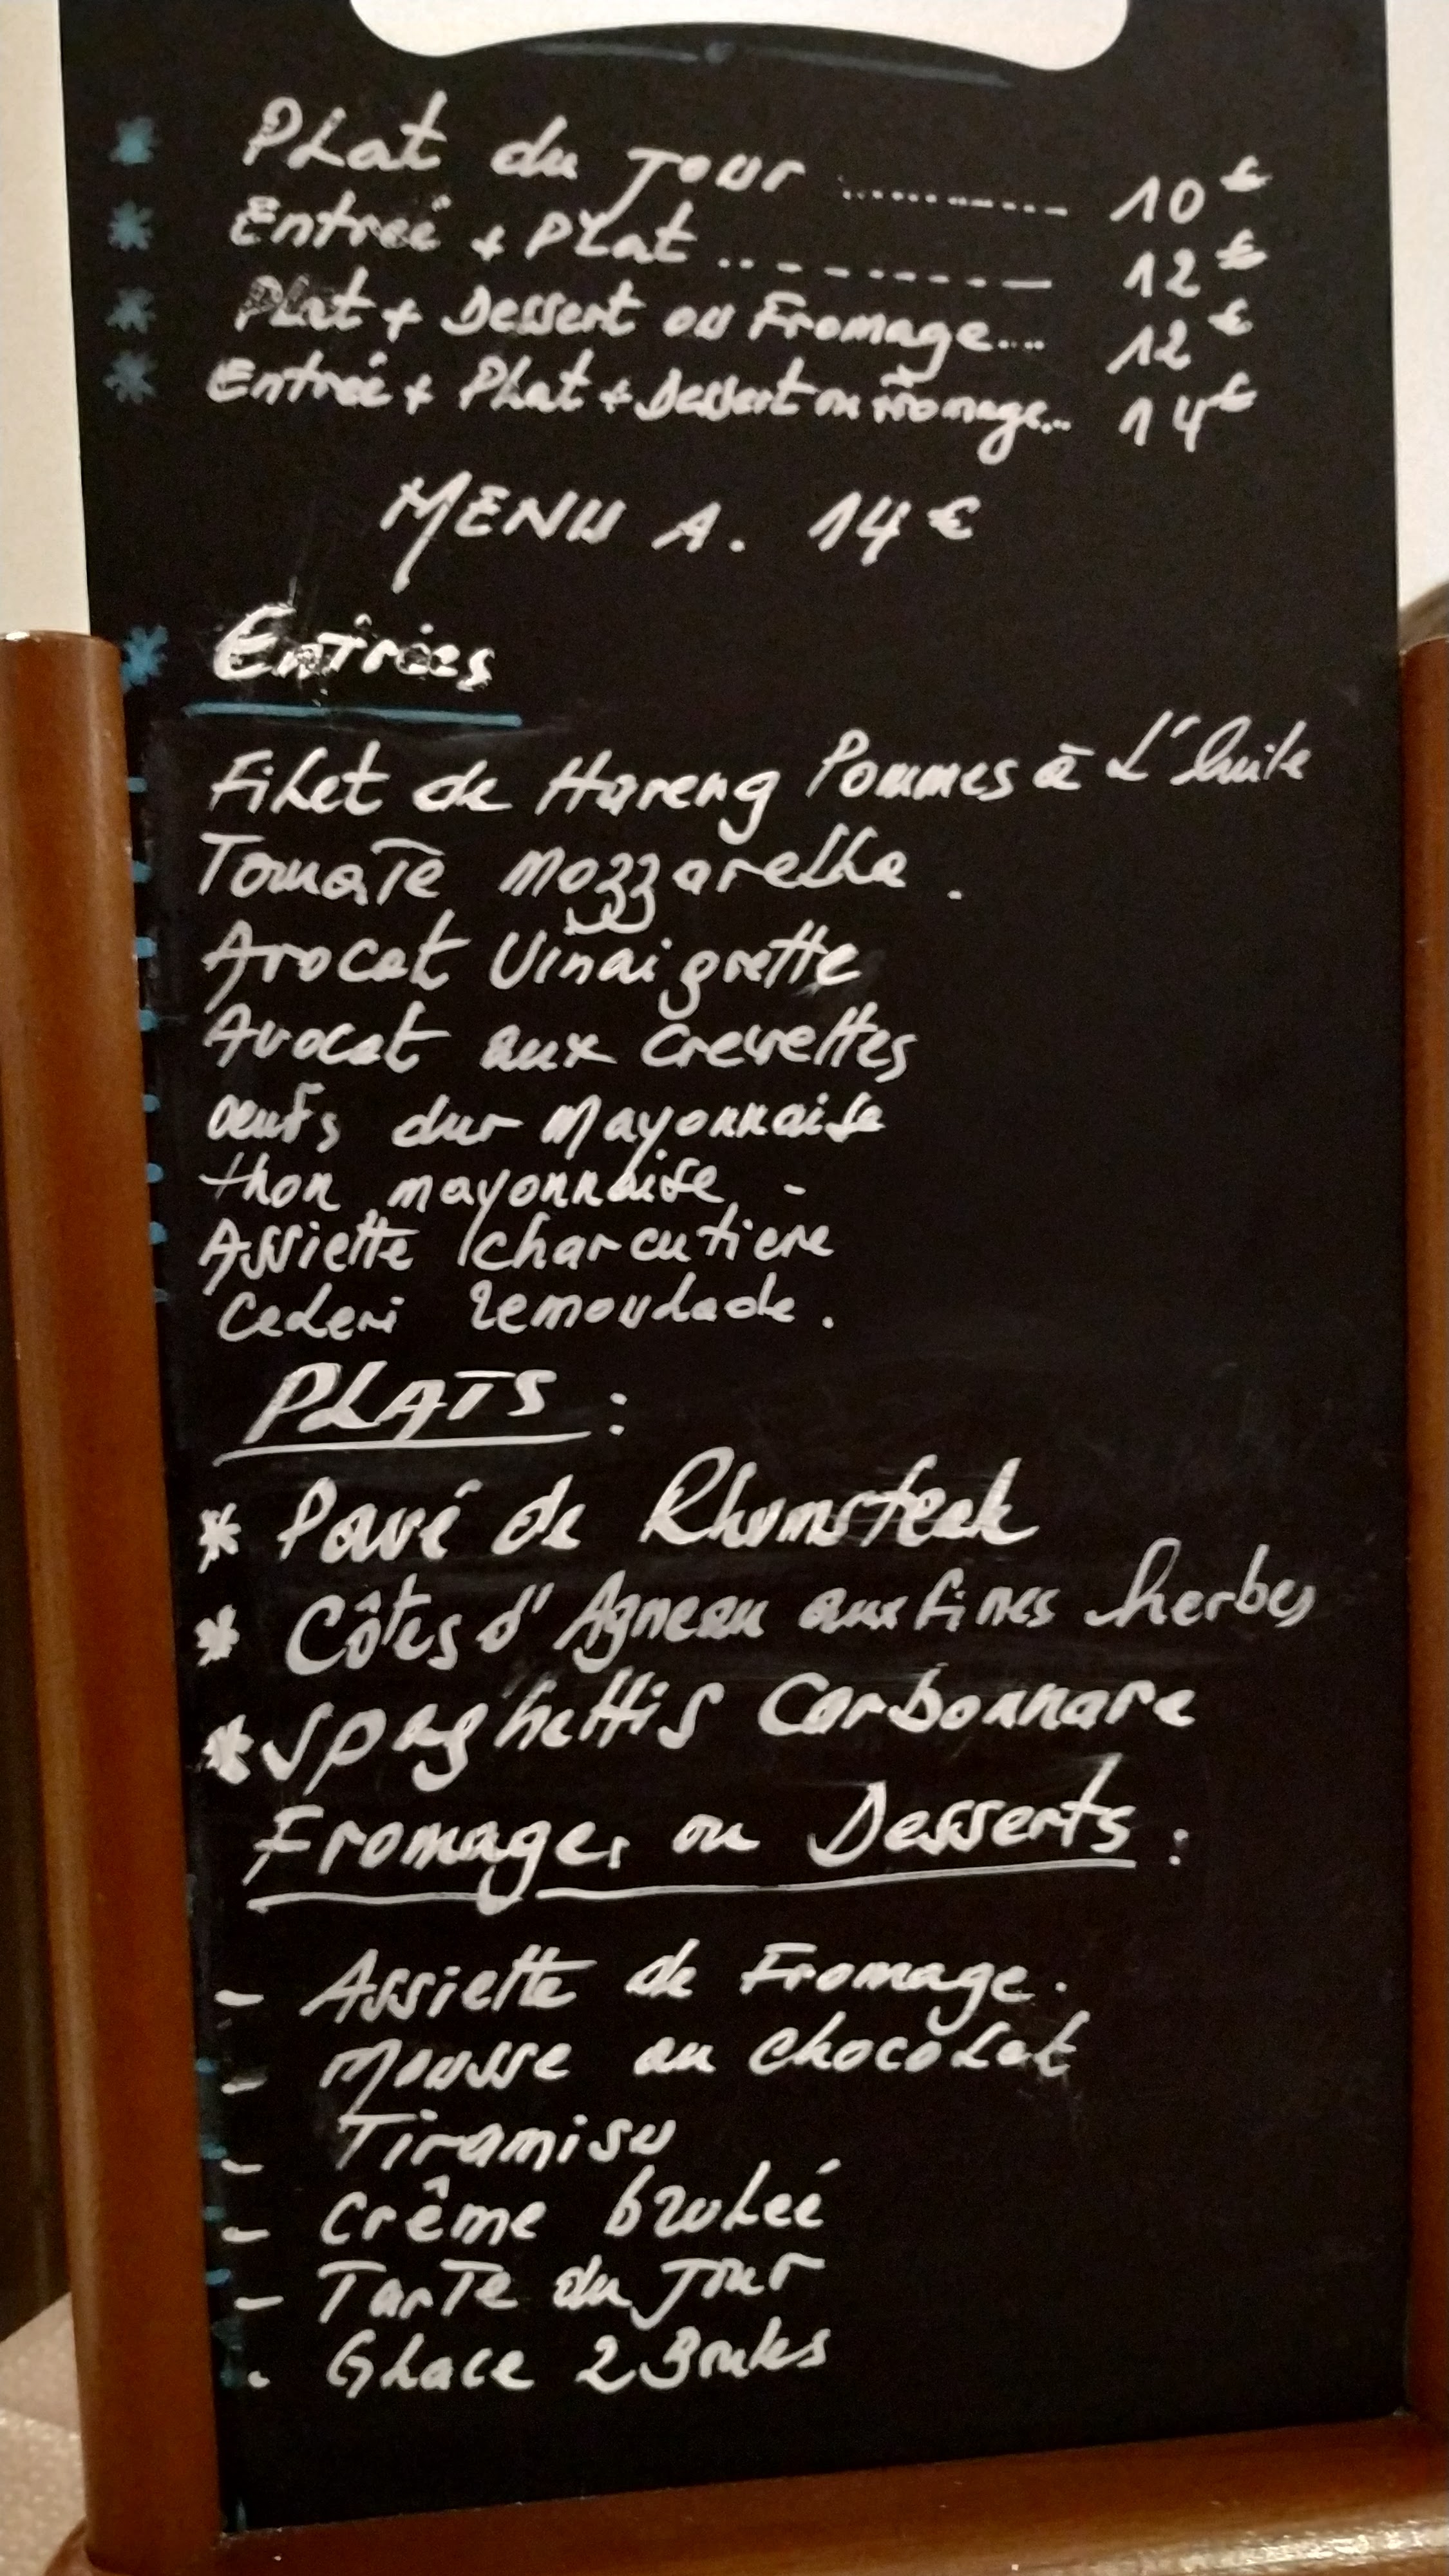 Plat du Jour .......... 10€
Entreé + Plat .. - - - - - - - 12€
Plat + Dessert ou Fromage.... 12€
Entrée + Plat + Dessert ou Fromage... 14€
MENU A. 14€
Entrées
Filet de Hareng Pommes à L'huile
Tomate Mozzarella .
Avocat Vinaigrette
Avocat aux crevettes
oeufs dur Mayonnaise
thon mayonnaise -
Assiette charcutiere
Celeri remoulade .
PLATS :
* Pavé de Rhumsteak
* Côtes d'Agneau aux fines herbes
* Spaghettis Carbonnara
Fromages ou Desserts :
- Assiette de Fromage.
- Mousse au chocolat
- Tiramisu
- Crême bruleé
- Tarte du Jour
. Glace 2 Boules